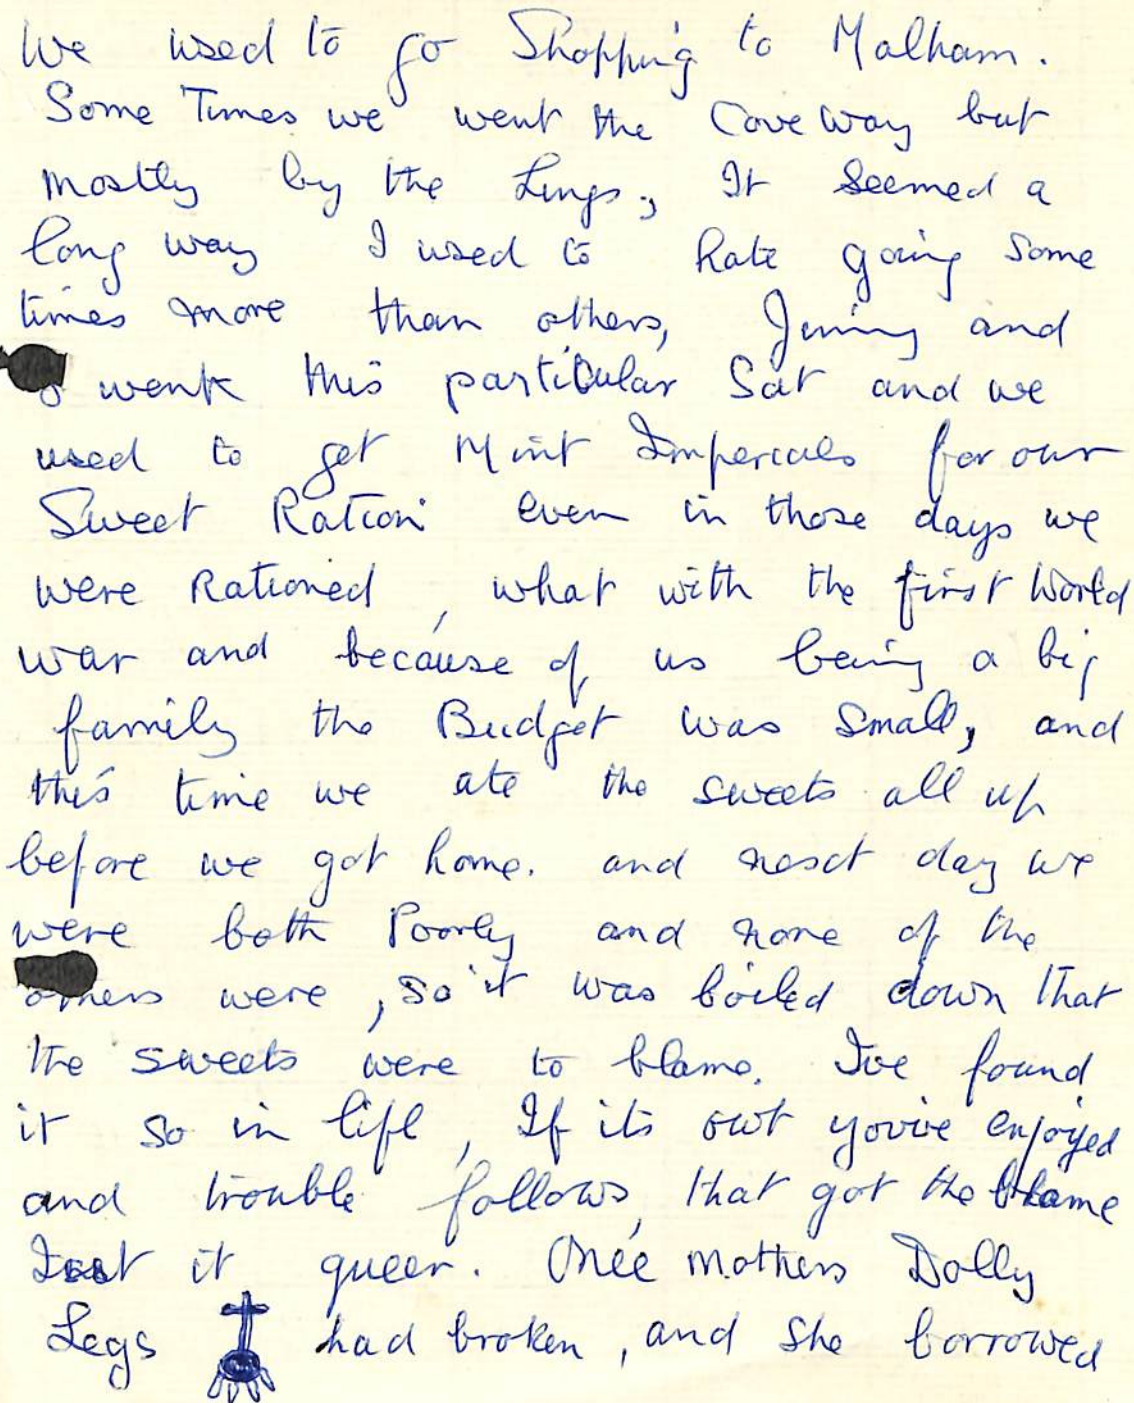 We used to go Shopping to Malham.
Some Times we went the Cove Way but
mostly by the Lings., It seemed a
long way I used to hate going some
times more than others, Jinny and
went this particular Sat and we
used to get Mint Imperials for our
Sweet Ration even in those days we
were Rationed, what with the first World
war and because of us being a big
family the Budget was small, and
this time we ate the sweets all up
before we got home. and next day we
were both Poorly and none of the
others were, so it was boiled down that
the sweets were to blame. I've found
it so in life, If its owt you've enjoyed
and trouble follows, that got the blame
it queer. Once mothers Dolly
Legs had broken, and she borrowed